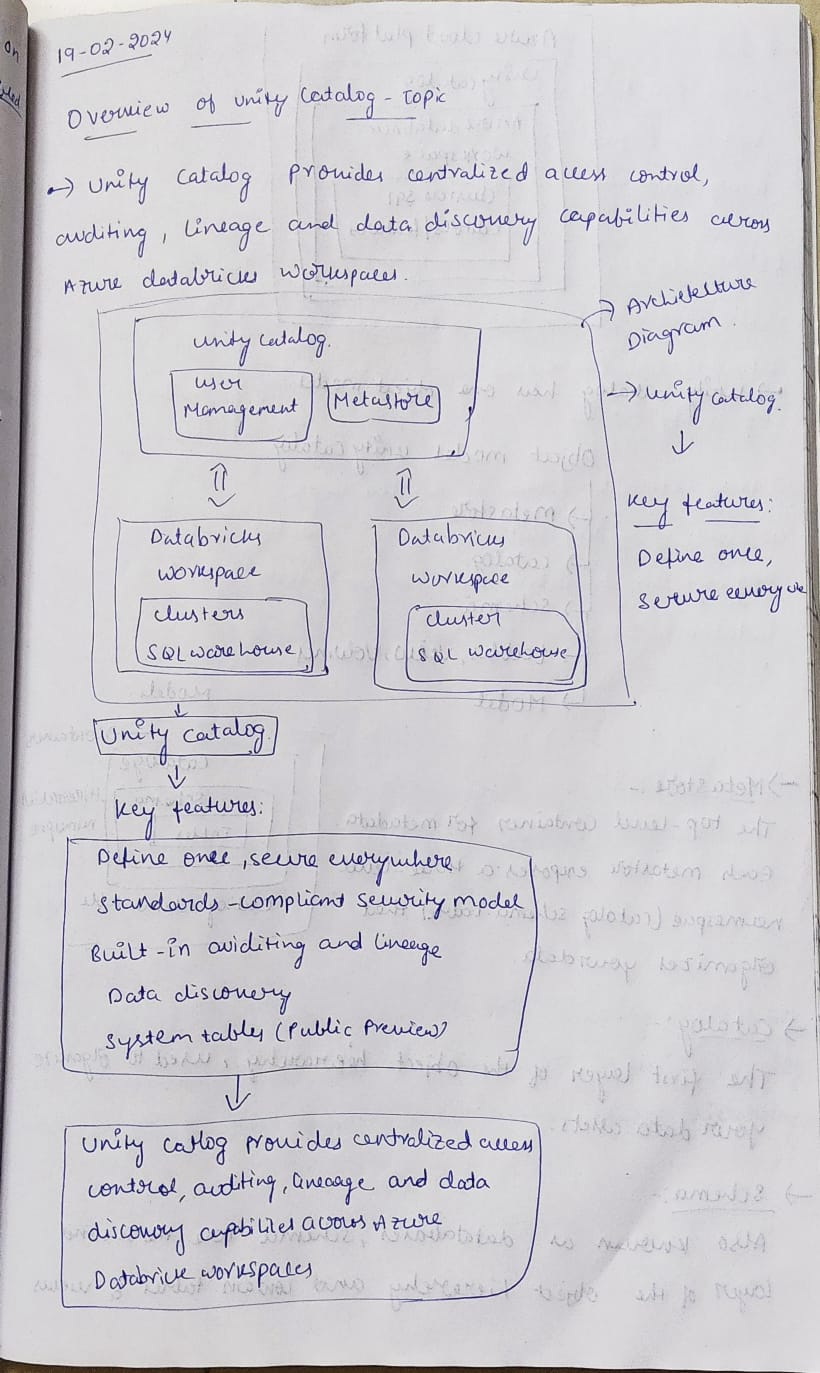 19-02-2024
Overview of Unity Catalog - Topic
→ Unity Catalog provides centralized access control,
auditing, lineage and data discovery capabilities across
Azure databricks workspaces.
→ Architecture
Diagram.
Unity Catalog.
User
Management
Metastore
→ Unity Catalog.
↓
Key features:
Define once,
secure every
⇕
⇕
Databricks
workspace
clusters
SQL warehouse
Databricks
workspace
cluster
SQL warehouse
↓
Unity Catalog
↓
Key features:
Define once, secure everywhere
Standards-compliant security model
Built-in auiditing and lineage
Data discovery
System tables (Public Preview)
↓
Unity Catlog provides centralized access
control, auditing, lineage and data
discovery capabilites across Azure
Databrick workspaces